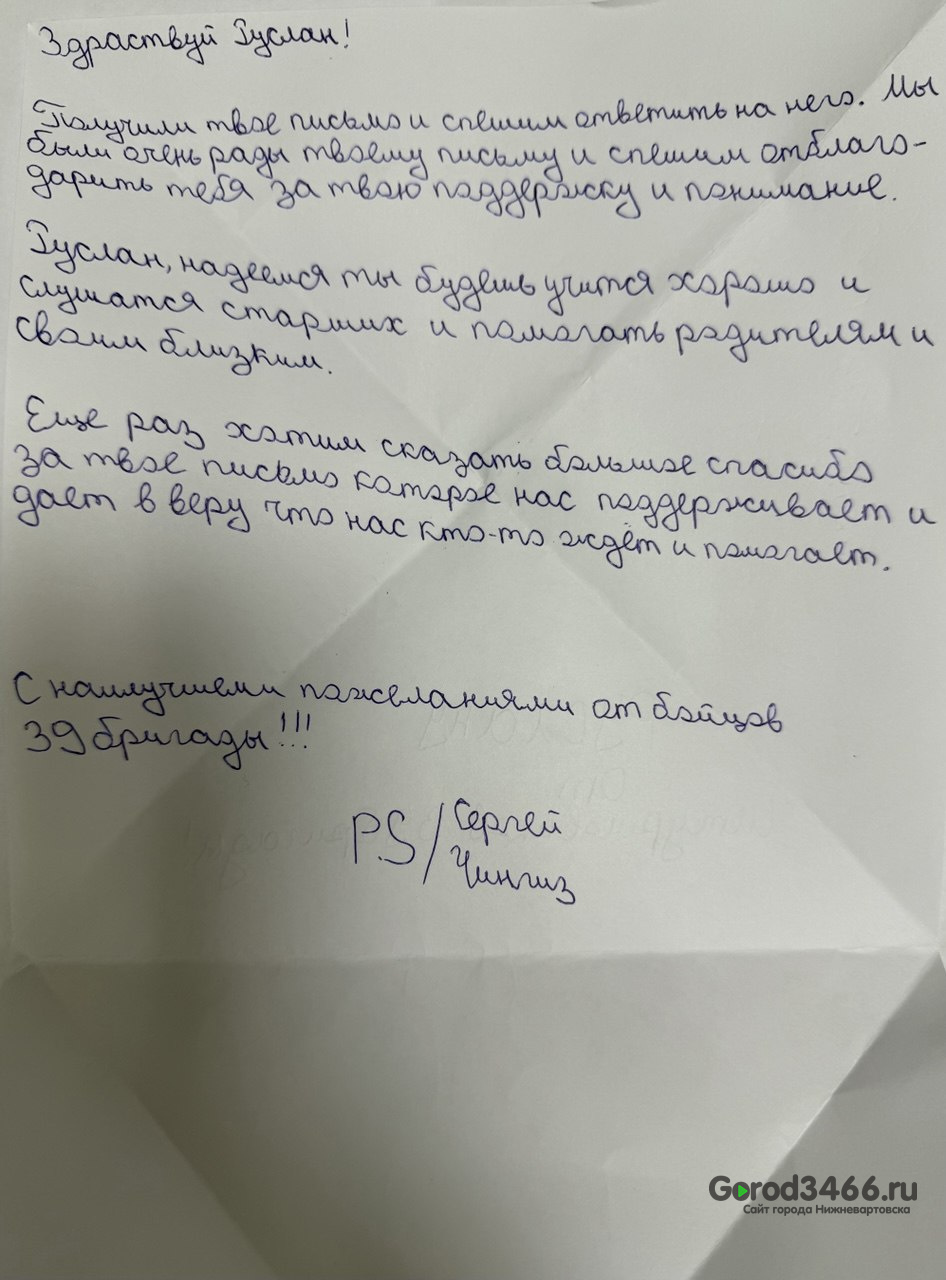 Здраствуй Руслан!
Получили твое письмо и спешим ответить на него. Мы
были очень рады твоему письму и спешим отблаго-
дарить тебя за твою поддержку и понимание.
Руслан, надеемся ты будешь учится хорошо и
слушатся старших и помогать родителям и
своим близким.
Еще раз хотим сказать большое спасибо
за твое письмо которое нас поддерживает и
дает в веру что нас кто-то ждёт и помогает.
С наилучшеми пожеланиями от бойцов
39 бригады!!!
P.S/Сергей
Чингиз
Gorod3466.ru
Сайт города Нижневартовска